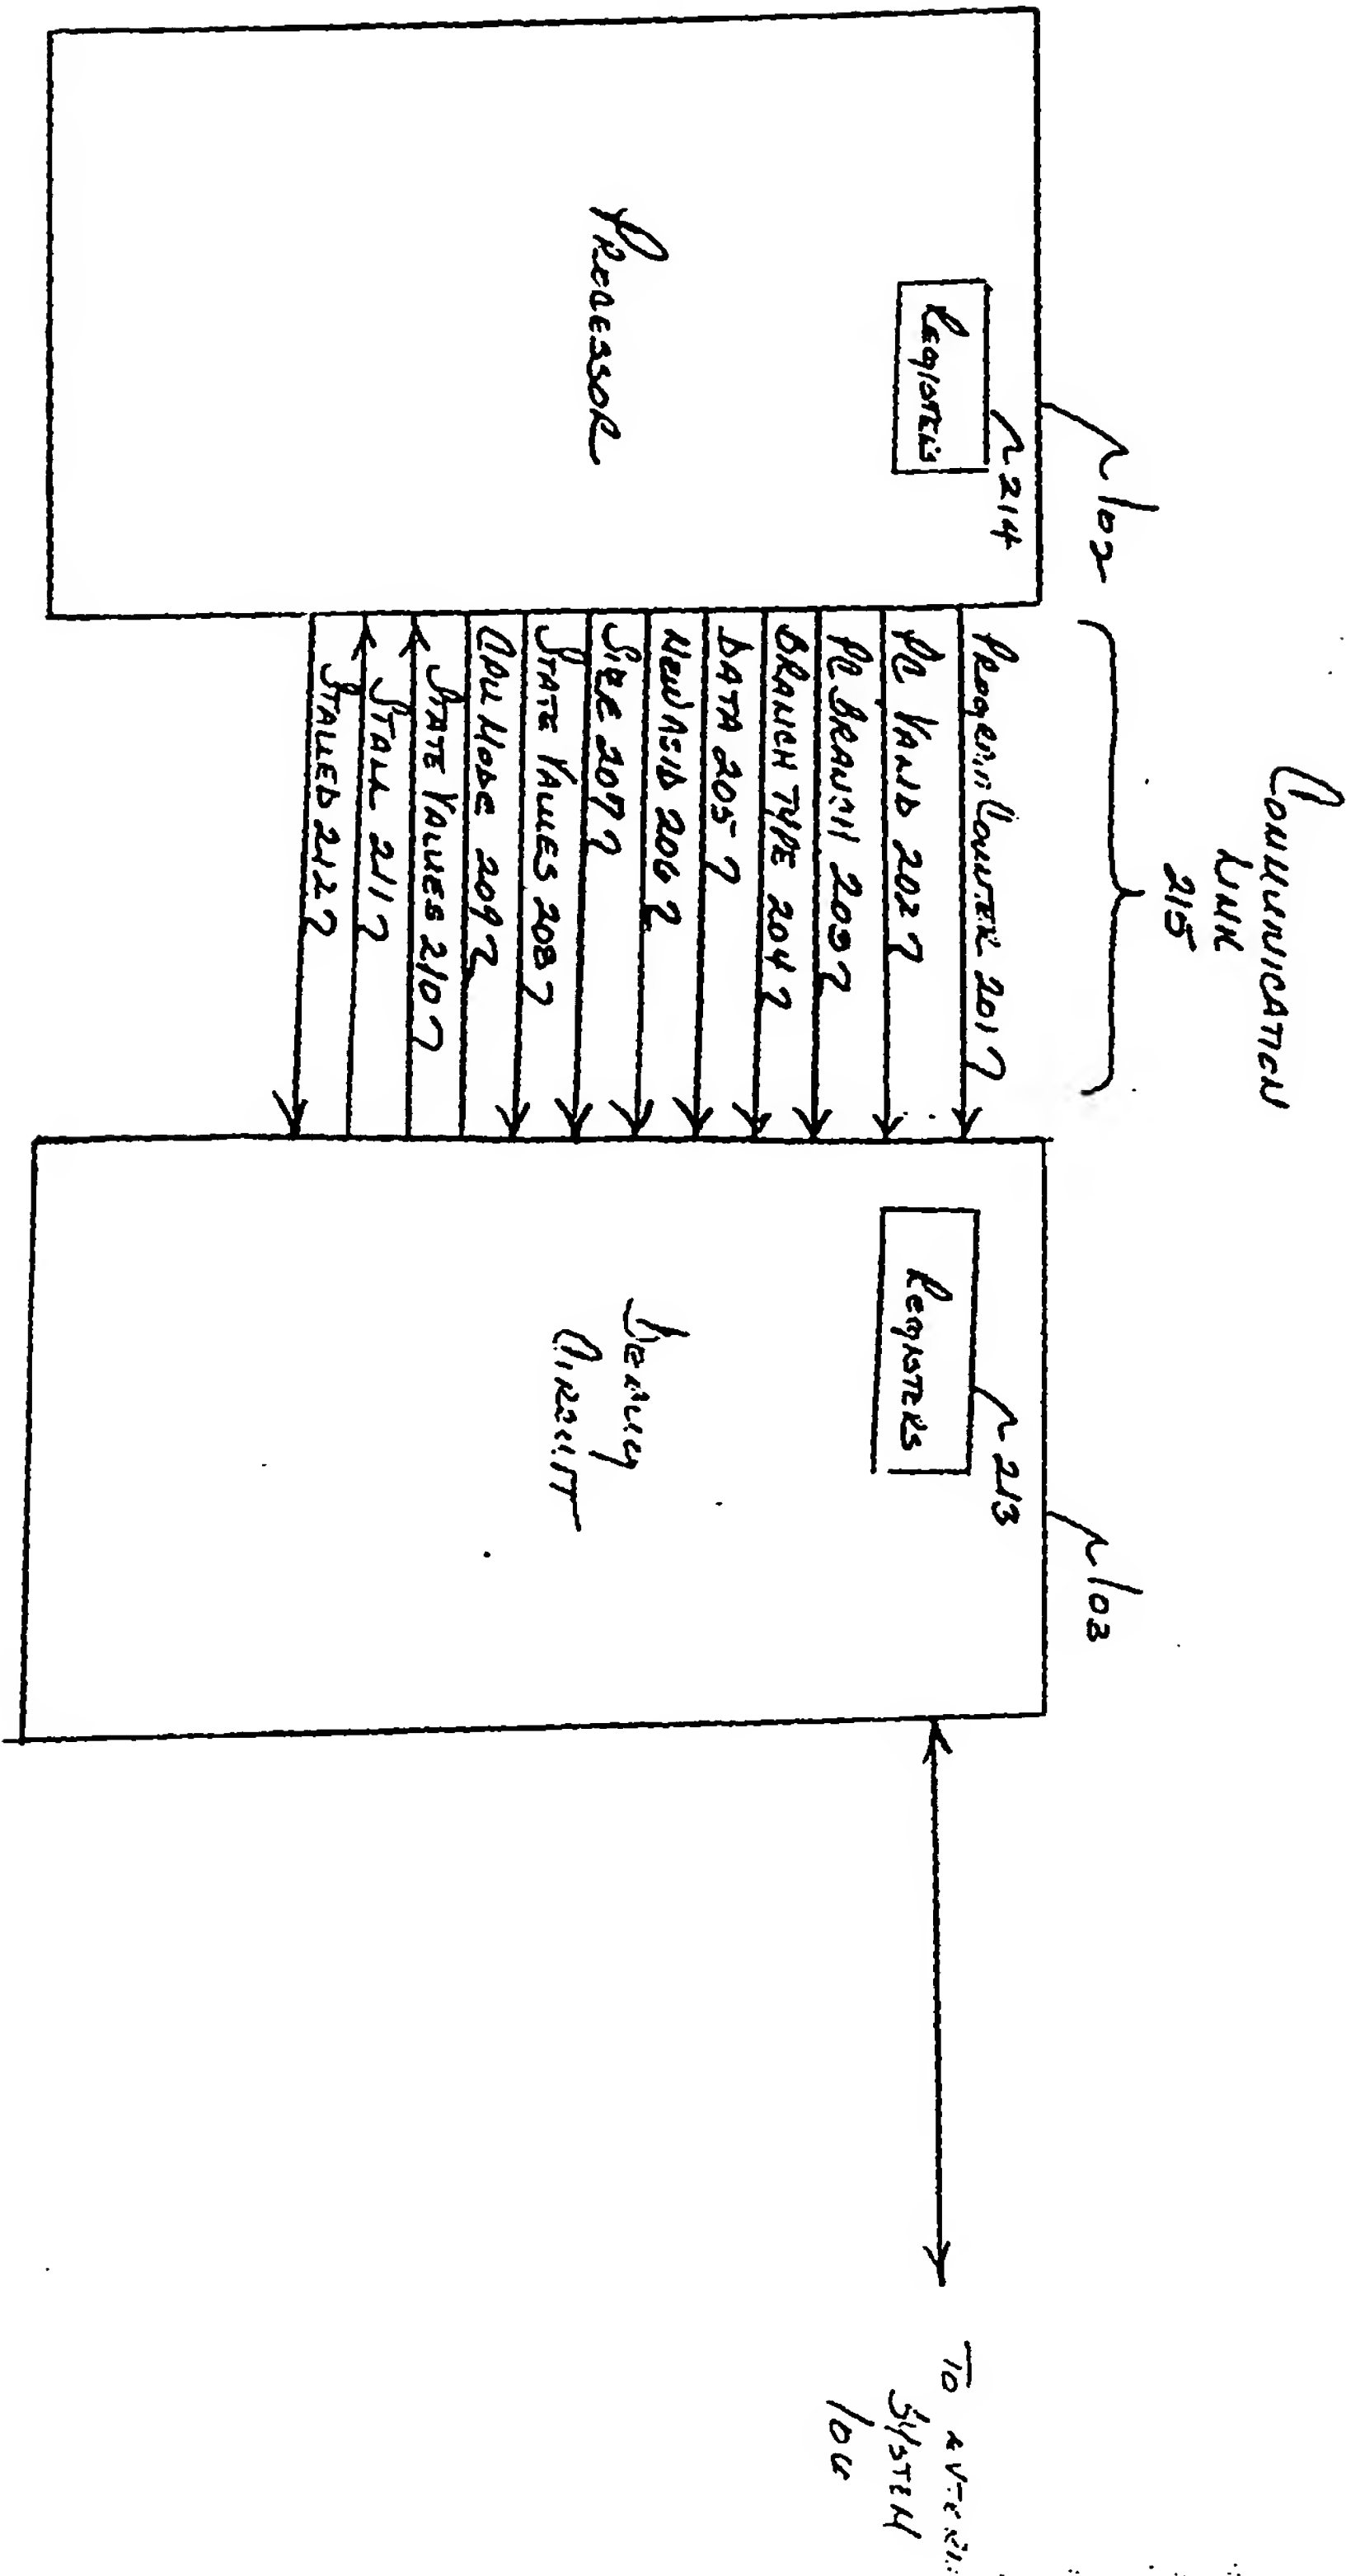 COMMUNICATION
LINK
215
102
103
214
REGISTERS
213
REGISTERS
PROGRAM COUNTER 201
PC VALID 202
PC BRANCH 203
BRANCH TYPE 204
DATA 205
NEW ASID 206
SIZE 207
STATE VALUES 208
CPU MODE 209
STATE VALUES 210
STALL 211
STALLED 212
PROCESSOR
DEBUG
CIRCUIT
TO
SYSTEM